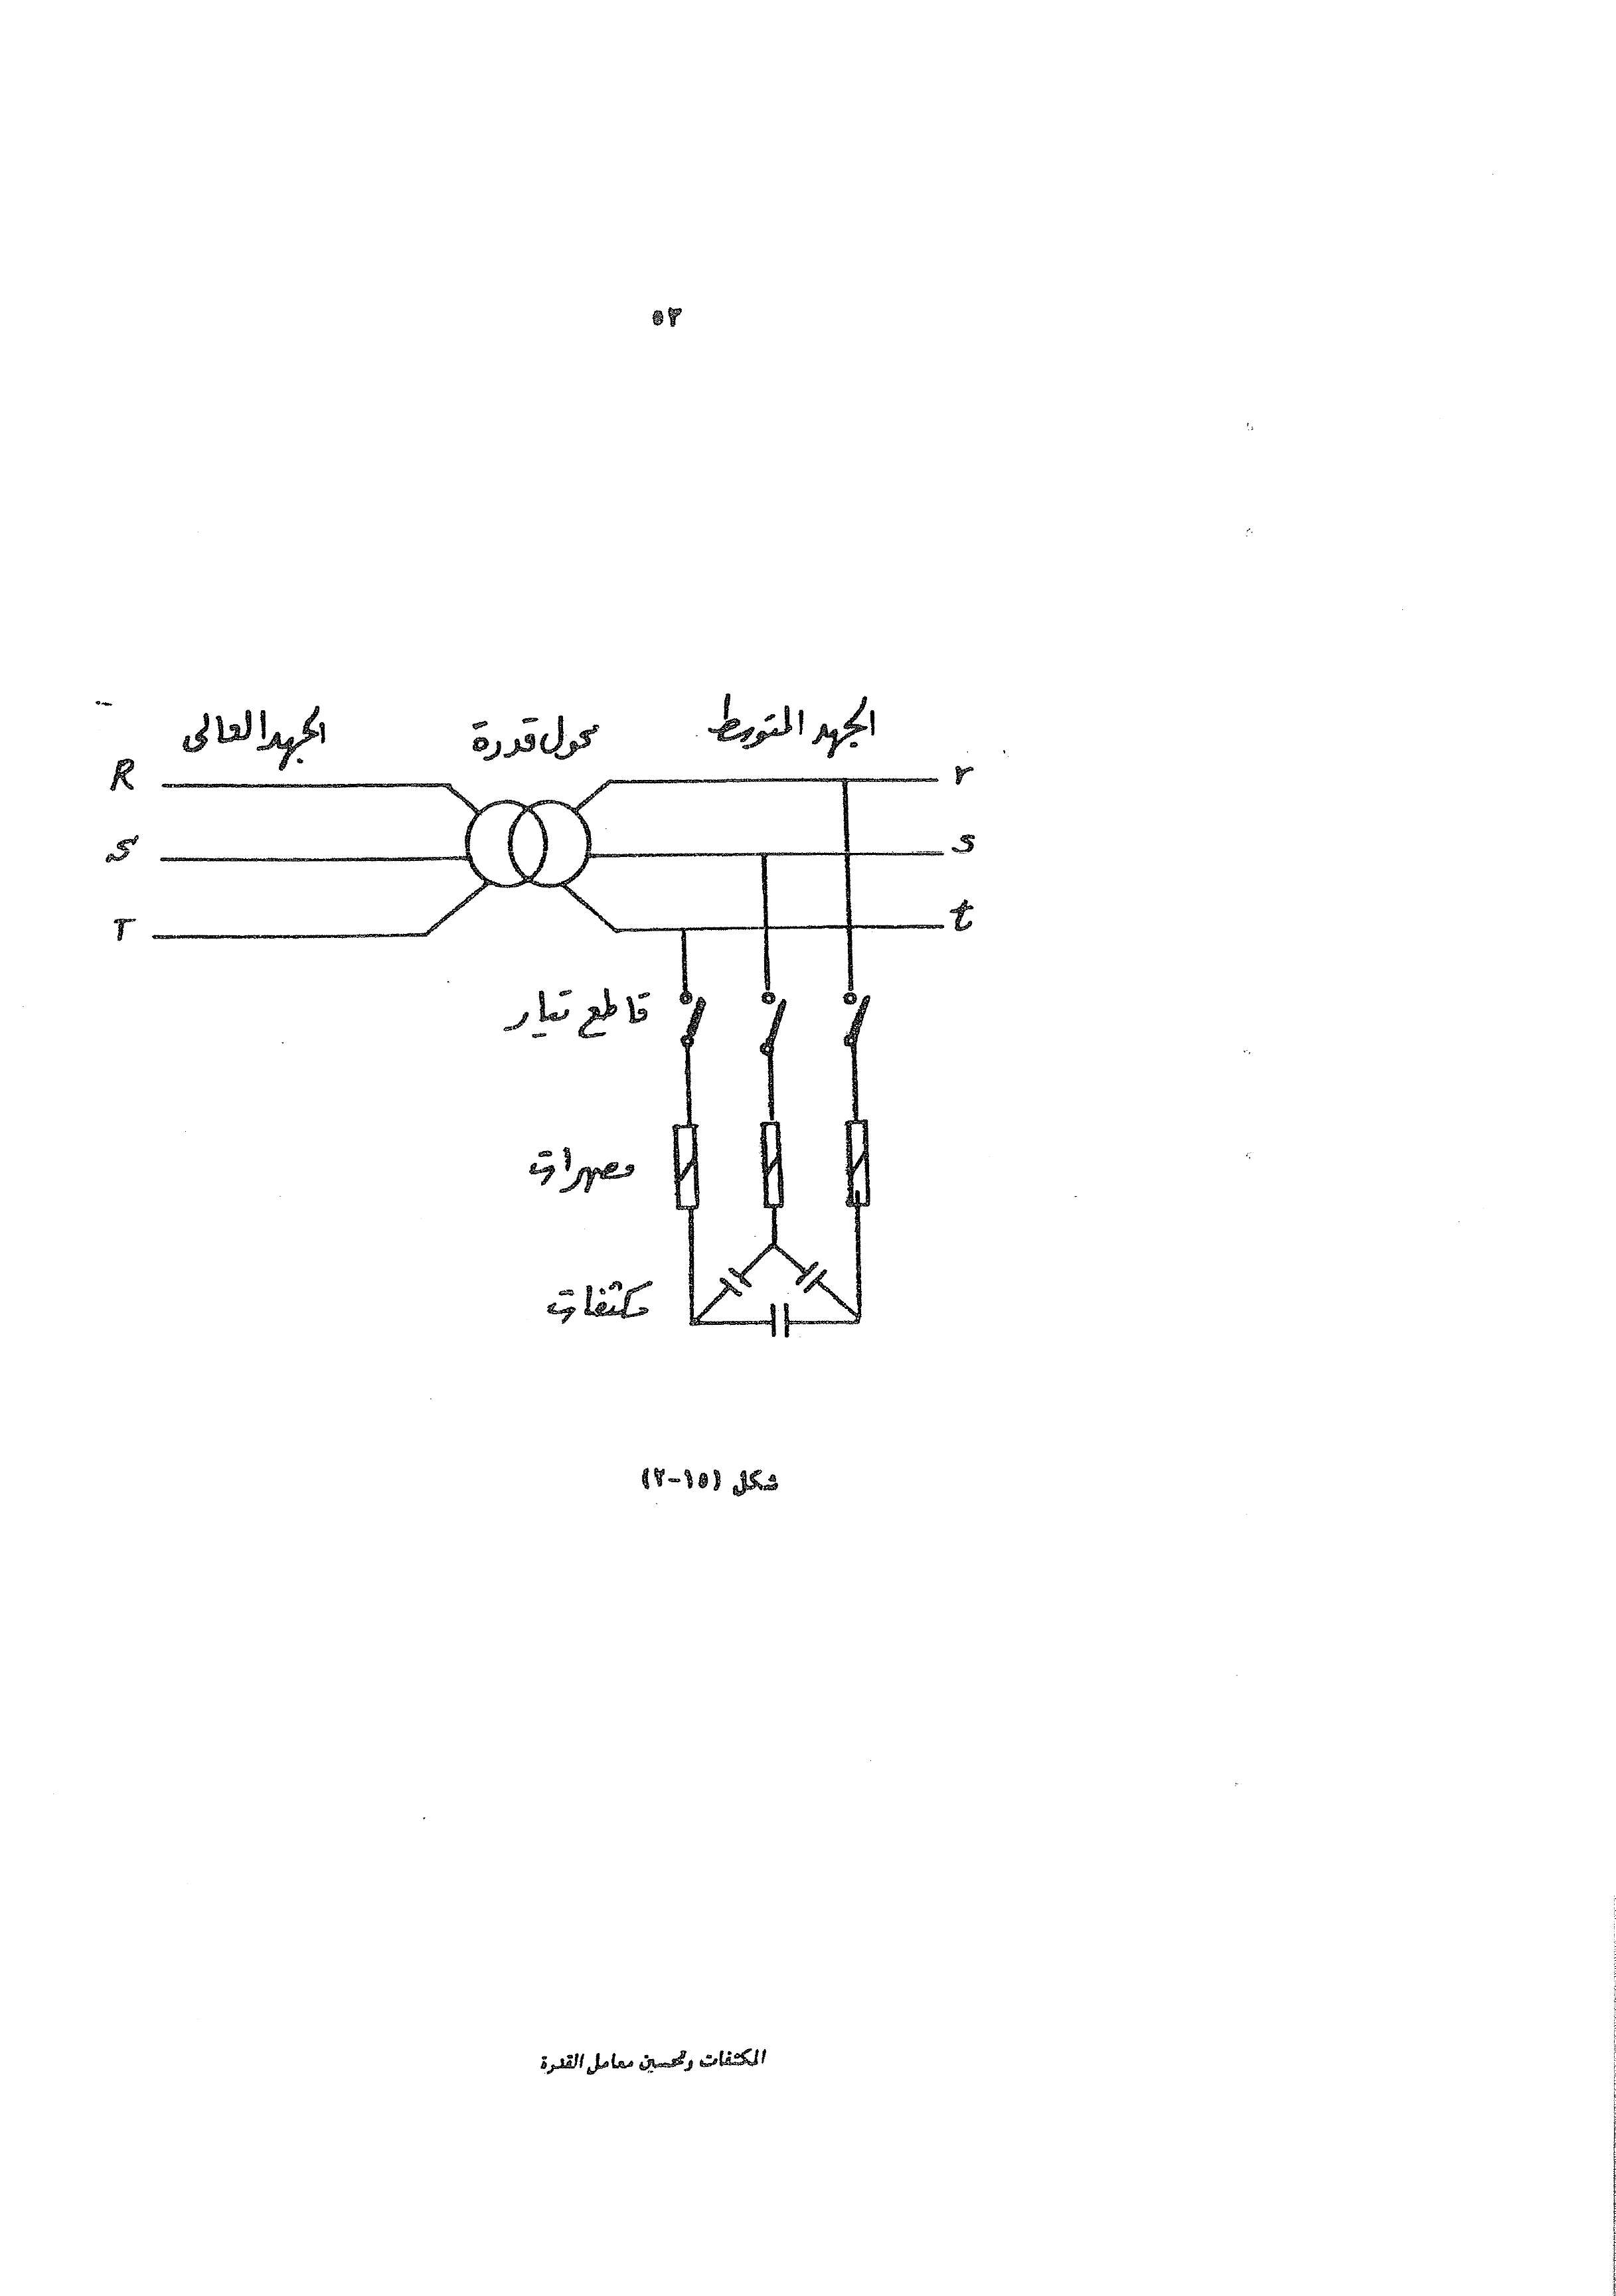 ٥٣
الجهد العالى محول قدرة الجهد المتوسط
R r
S s
T t
قاطع تيار
مصهرات
مكثفات
شكل (١٥-٢)
المكثفات وتحسين معامل القدرة